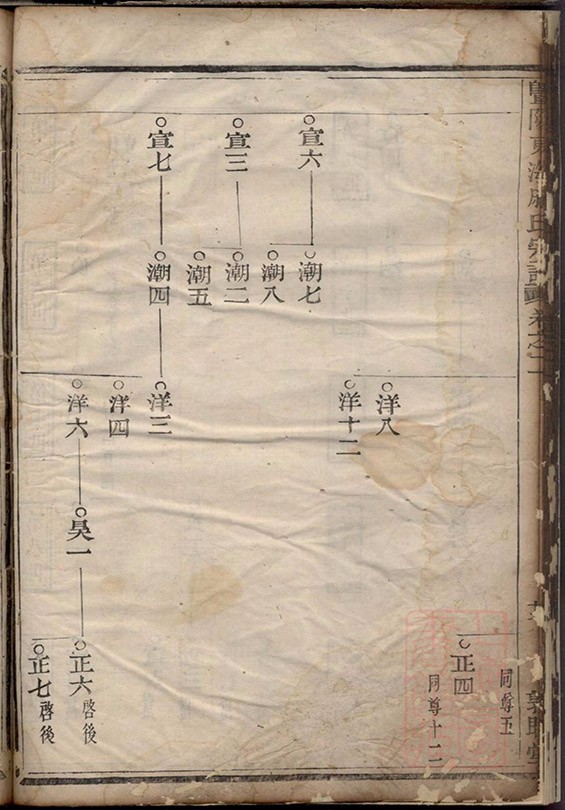 暨陽
氏宗譜卷之二
同尊五
正四
同尊十二
宣六
潮七
潮八
洋八
洋十二
宣三
潮二
潮五
宣七
潮四
洋三
洋四
洋六
昊一
正六啓後
正七啓後